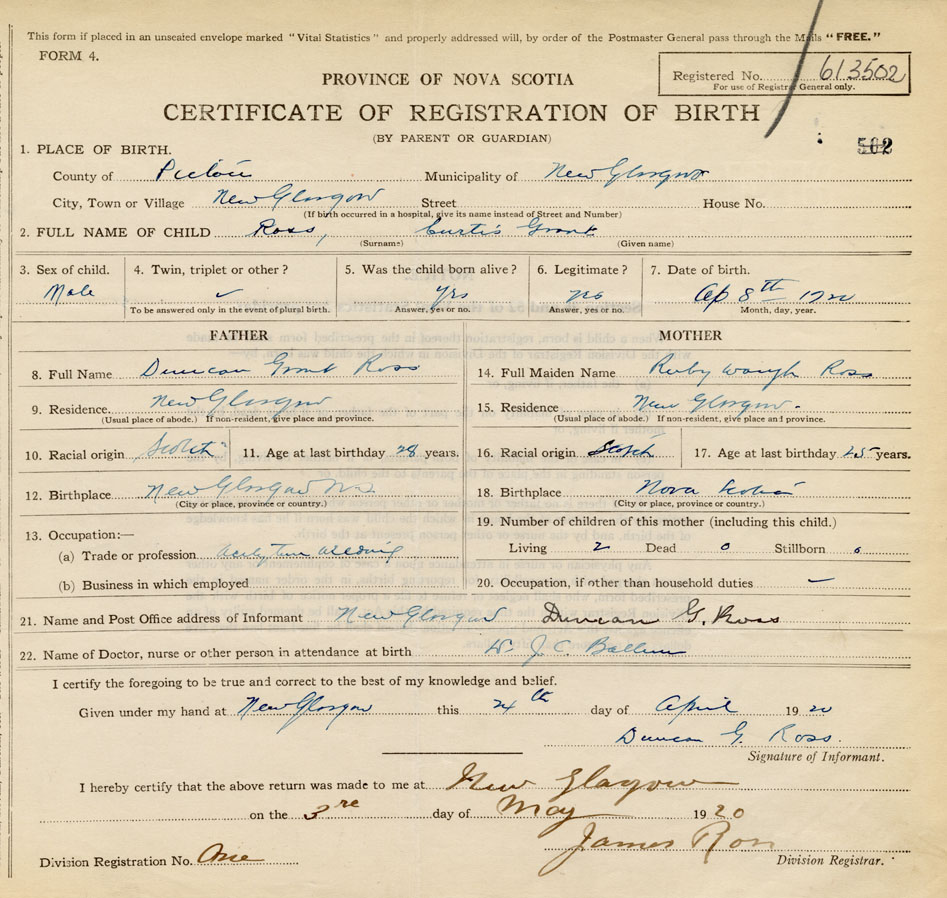 This form if placed in an unsealed envelope marked "Vital Statistics" and properly addressed will, by order of the Postmaster General pass through the Mails "FREE."
FORM 4.
PROVINCE OF NOVA SCOTIA
Registered No. 613502
For use of Registrar General only.
CERTIFICATE OF REGISTRATION OF BIRTH
(BY PARENT OR GUARDIAN)
502
1. PLACE OF BIRTH.
County of Pictou Municipality of New Glasgow
City, Town or Village New Glasgow Street House No.
(If birth occurred in a hospital, give its name instead of Street and Number)
2. FULL NAME OF CHILD Ross, Curtis Grant
(Surname) (Given name)
3. Sex of child. 4. Twin, triplet or other? 5. Was the child born alive? 6. Legitimate? 7. Date of birth.
Male yes yes Ap 8th 1920
To be answered only in the event of plural birth. Answer, yes or no. Answer, yes or no. Month, day, year.
FATHER MOTHER
8. Full Name Duncan Grant Ross 14. Full Maiden Name Ruby Waugh Ross
9. Residence. New Glasgow 15. Residence New Glasgow.
(Usual place of abode.) If non-resident, give place and province. (Usual place of abode.) If non-resident, give place and province.
10. Racial origin Scotch 11. Age at last birthday 28 years. 16. Racial origin Scotch 17. Age at last birthday 25 years.
12. Birthplace New Glasgow N.S. 18. Birthplace Nova Scotia
(City or place, province or country.) (City or place, province or country.)
13. Occupation:— 19. Number of children of this mother (including this child.)
(a) Trade or profession Living 2 Dead 0 Stillborn 0
(b) Business in which employed 20. Occupation, if other than household duties —
21. Name and Post Office address of Informant New Glasgow Duncan G. Ross
22. Name of Doctor, nurse or other person in attendance at birth Dr. J. C. Ballem
I certify the foregoing to be true and correct to the best of my knowledge and belief.
Given under my hand at New Glasgow this 24th day of April 1920
Duncan G. Ross.
Signature of Informant.
I hereby certify that the above return was made to me at New Glasgow
on the 3rd day of May 1920
James Ross
Division Registration No. One Division Registrar.